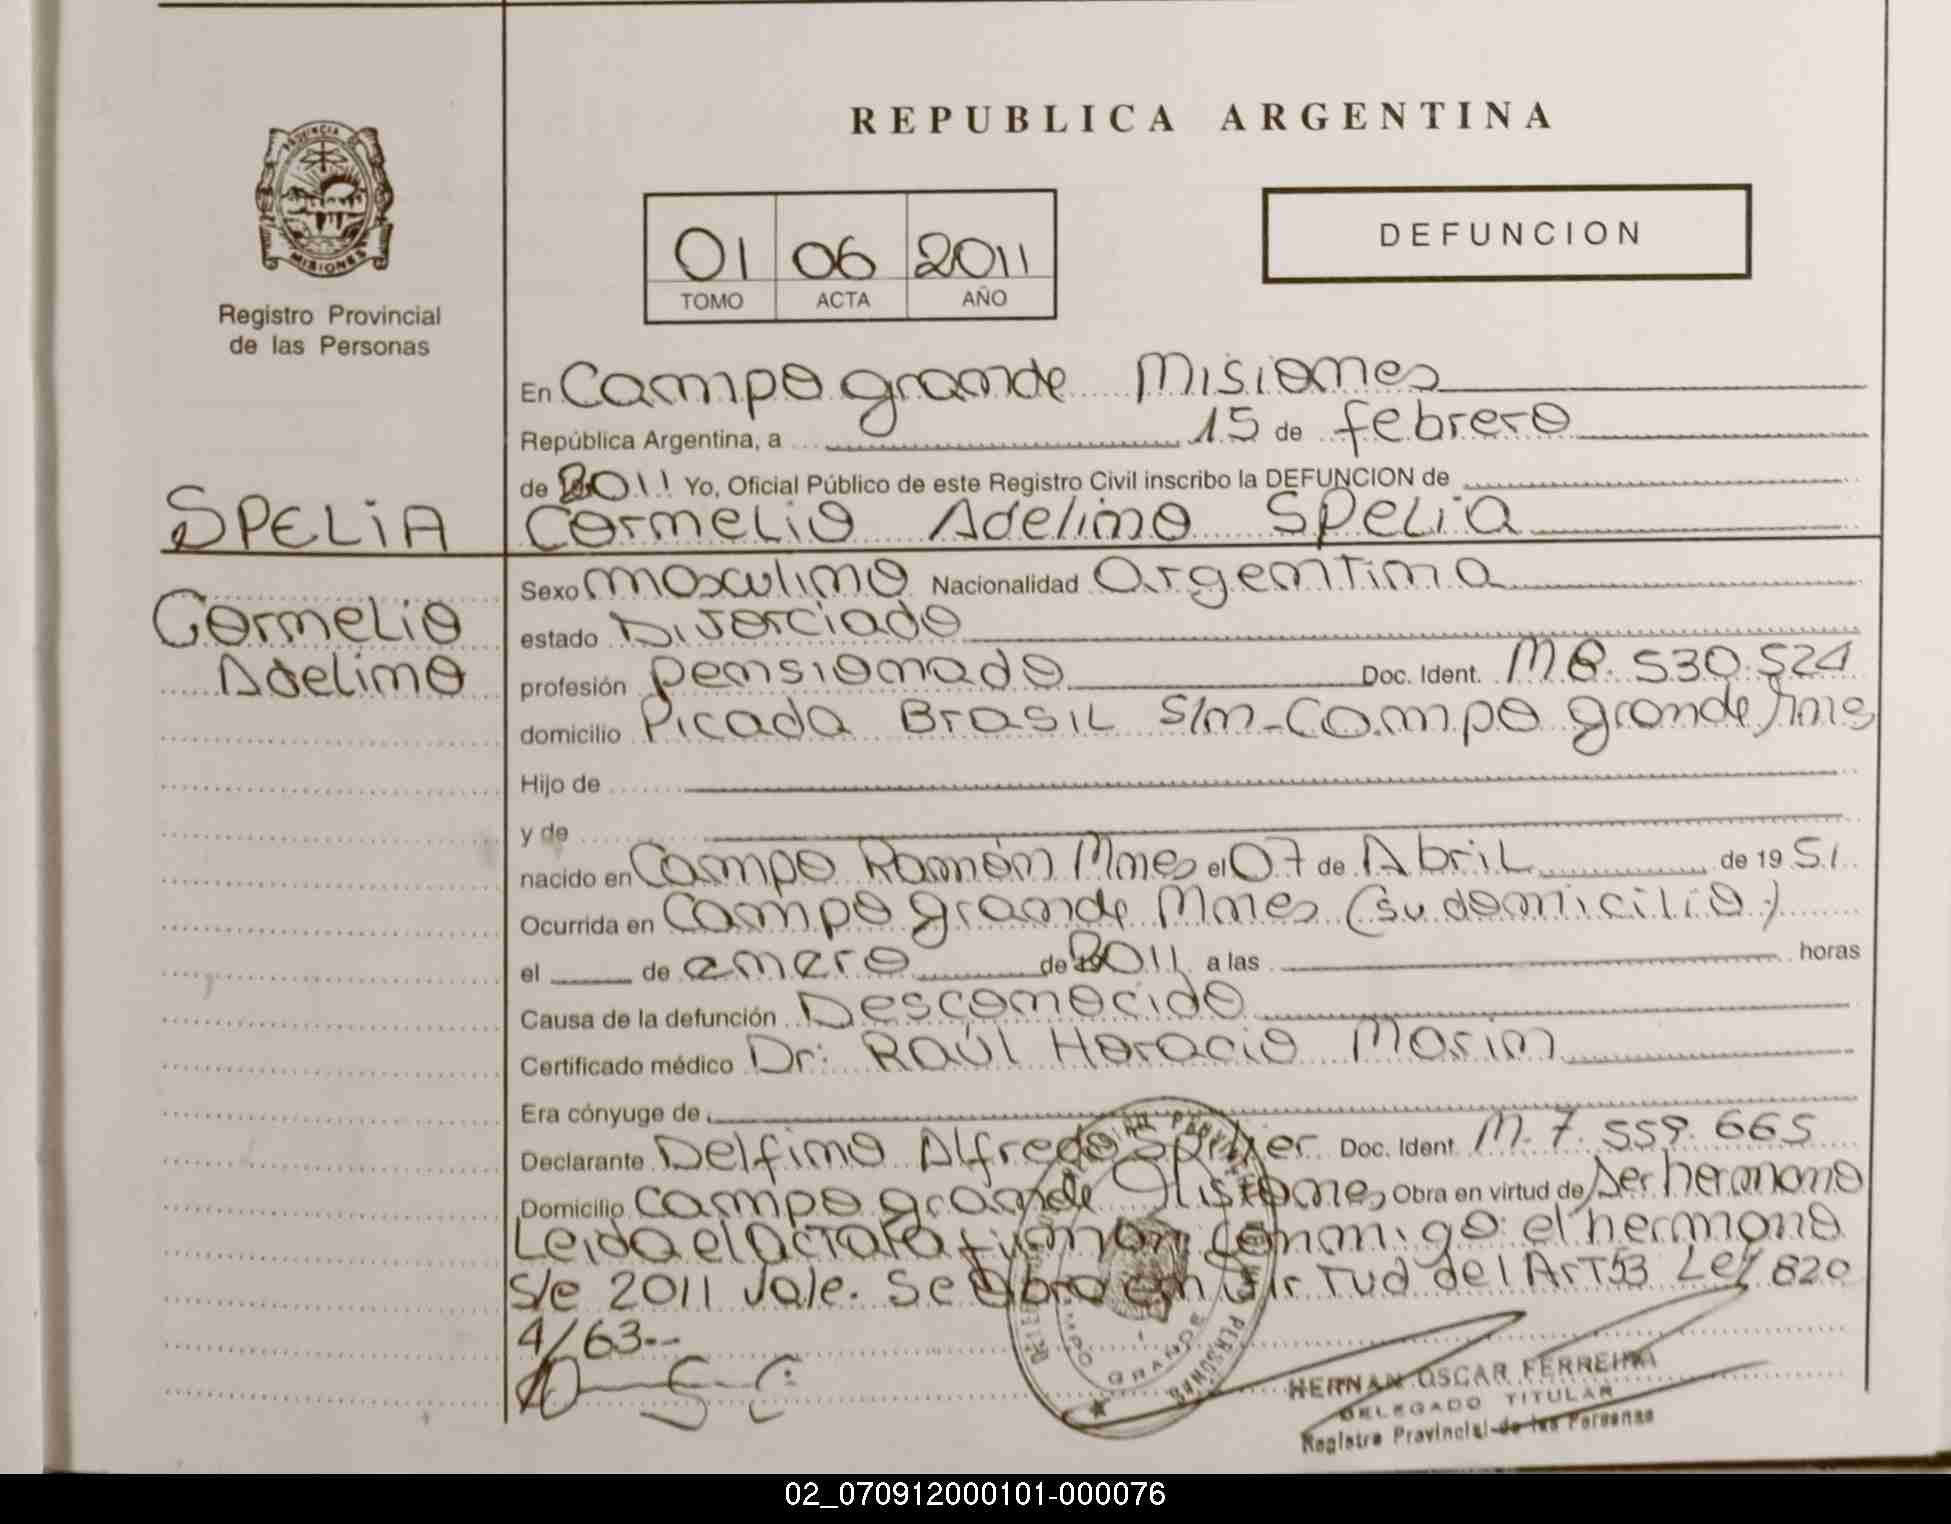 REPUBLICA ARGENTINA
PROVINCIA DE
MISIONES
Registro Provincial
de las Personas
01 06 2011
TOMO ACTA AÑO
DEFUNCION
En Campo grande Misiones
República Argentina, a 15 de febrero
de 2011 Yo, Oficial Público de este Registro Civil inscribo la DEFUNCION de
SPELiA
Cornelio Adelino Spelia
Cornelio
Adelino
Sexo masculino Nacionalidad Argentina
estado Divorciado
profesión pensionado Doc. Ident. M 8.530.524
domicilio Picada Brasil s/n-Campo grande Mnes
Hijo de
y de
nacido en Campo Ramón Mnes el 07 de Abril de 1951
Ocurrida en Campo grande Mnes (su domicilio)
el de enero de 2011 a las horas
Causa de la defunción Desconocido
Certificado médico Dr: Raúl Horacio Marin
Era cónyuge de
Declarante Delfino Alfredo Doc. Ident M. 7.559.665
Domicilio Campo grande Misiones Obra en virtud de ser hermano
Leida el acta la firman conmigo el hermano
s/e 2011 vale. Se obra en virtud del Art 53 Ley 820
4/63--
HERNAN OSCAR FERREIRA
DELEGADO TITULAR
Registro Provincial de las Personas
02_070912000101-000076